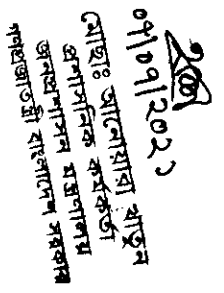 ০৭|০৭|২০২১
মোছাঃ আনোয়ারা খাতুন
প্রশাসনিক কর্মকর্তা
জনপ্রশাসন মন্ত্রণালয়
গণপ্রজাতন্ত্রী বাংলাদেশ সরকার